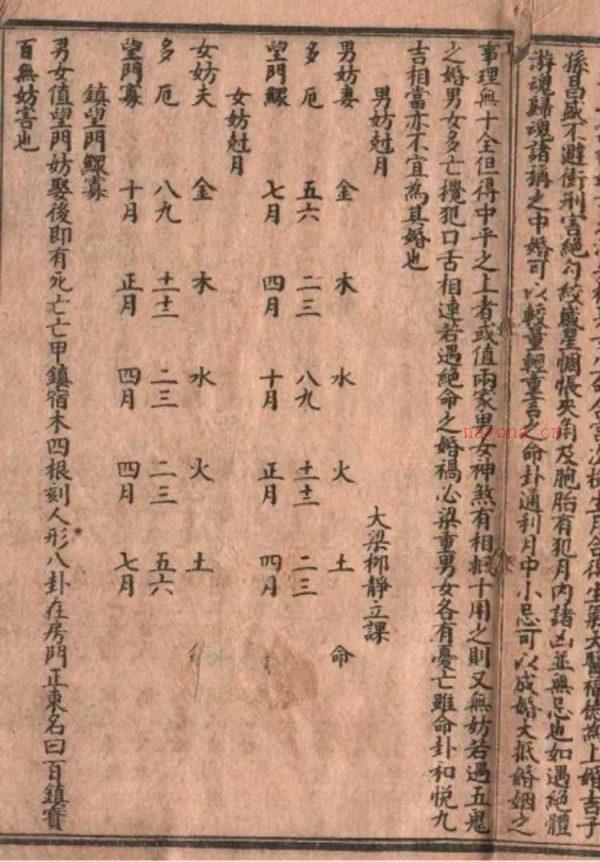 孫昌盛不避衝刑害絕勾絞歲星惆悵夾角及胞胎有犯月內諸凶並無忌也如遇絕體
游魂歸魂諸稱之中婚可以較量輕重言之命卦通利月中小忌可以成婚大抵婚姻之
事理無十全但得中平之上者或值兩家男女神煞有相十用之則又無妨若遇五鬼
之婚男女多亡攪犯口舌相連若遇絕命之婚禍必梁重男女各有憂亡雖命卦和悅九
吉相當亦不宜為其婚也
男妨尅月 大梁柳靜立課
男妨妻 金 木 水 火 土 命
多厄 五六 二三 八九 十十二 二三
望門鰥 七月 四月 十月 正月 四月
女妨尅月
女妨夫 金 木 水 火 土
多厄 八九 十十二 二三 二三 五六
望門寡 十月 正月 四月 四月 七月
鎮望門鰥寡
男女值望門妨娶後即有死亡亡甲鎮宿木四根刻人形八卦在房門正東名曰百鎮賓
百無妨害也
nayona.cn